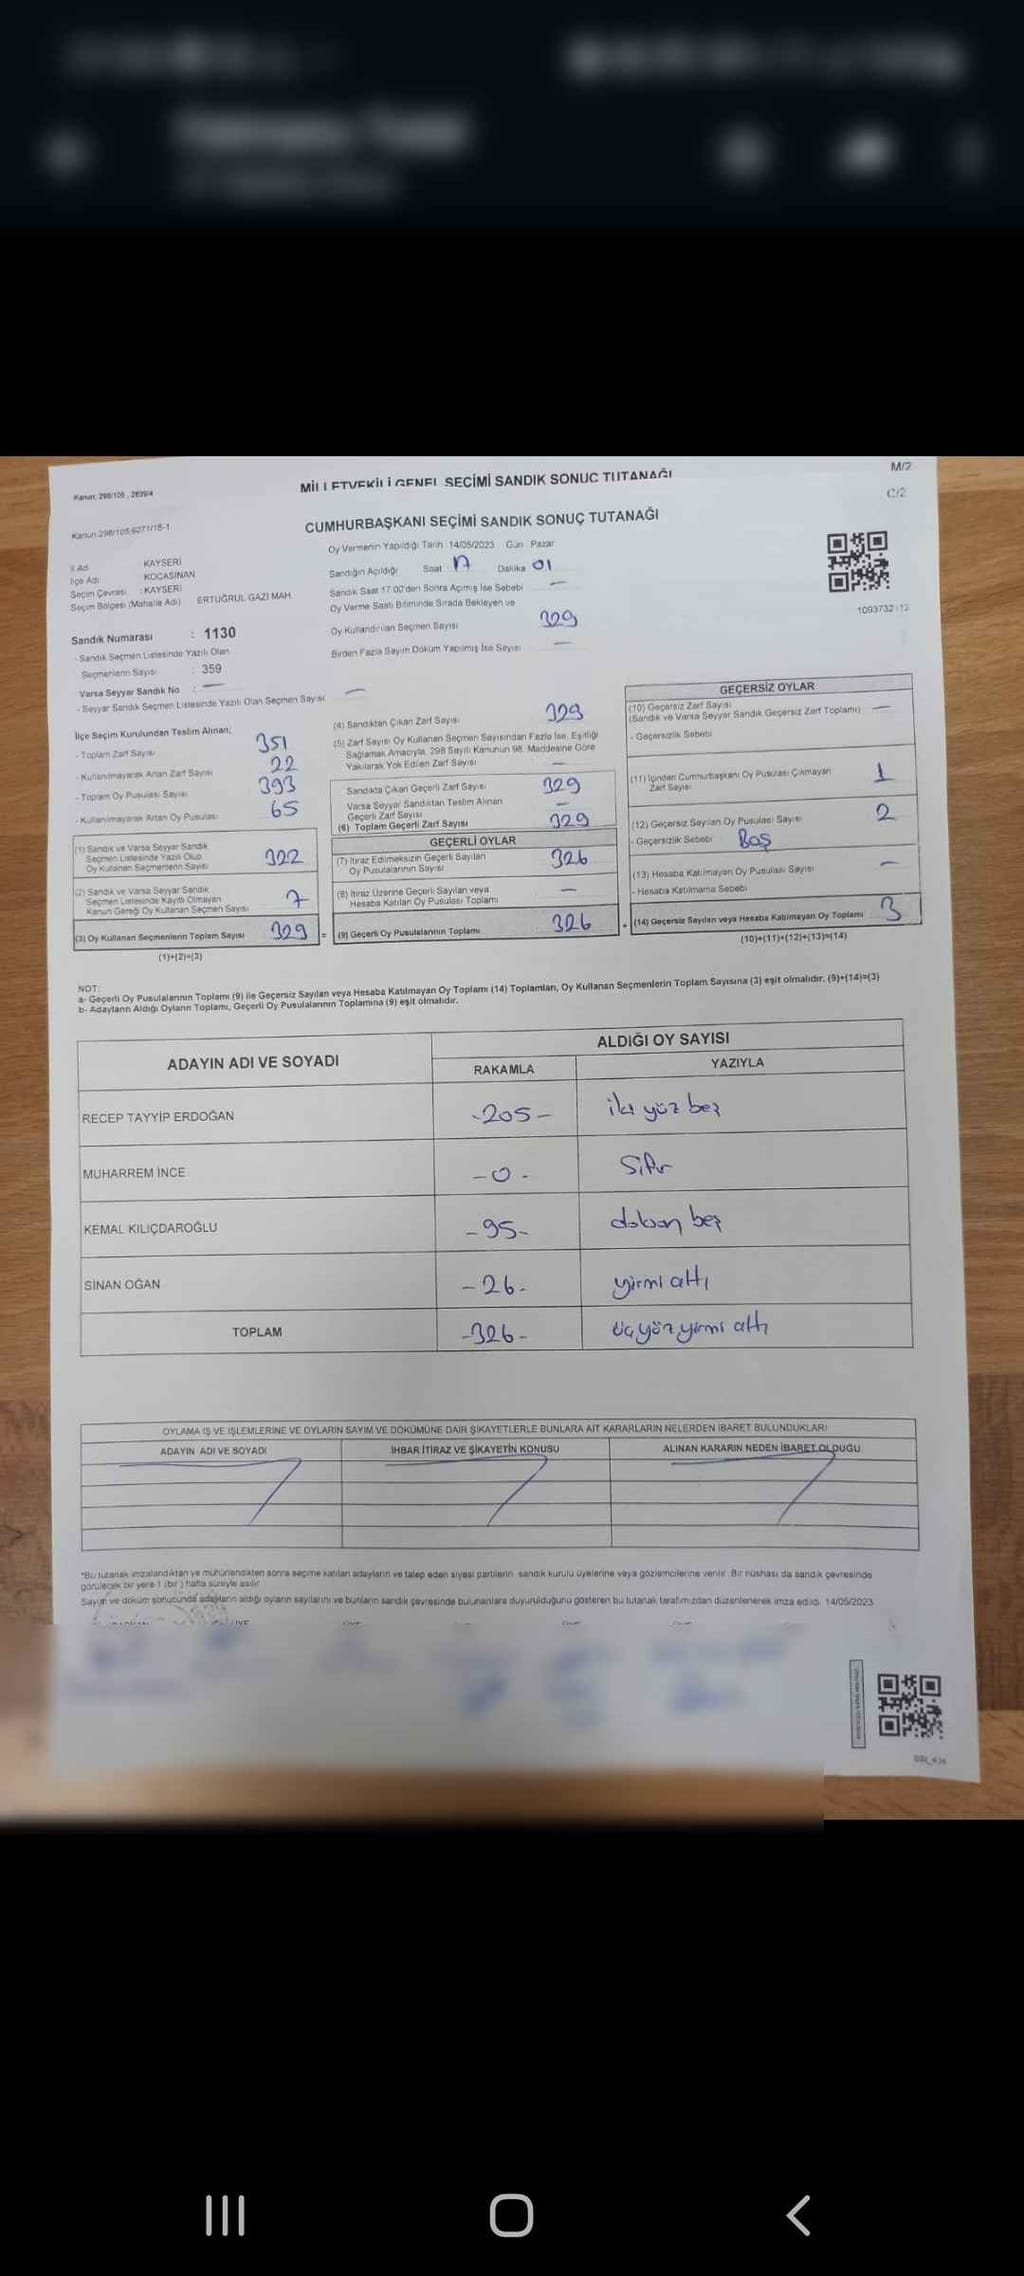 M/2
Kanun: 298/105 , 2839/4
MİLLETVEKİLİ GENEL SEÇİMİ SANDIK SONUÇ TUTANAĞI
C/2
Kanun:298/105,6271/18-1
CUMHURBAŞKANI SEÇİMİ SANDIK SONUÇ TUTANAĞI
İl Adı KAYSERİ
İlçe Adı KOCASİNAN
Seçim Çevresi : KAYSERİ
Seçim Bölgesi (Mahalle Adı) ERTUĞRUL GAZİ MAH.
Sandık Numarası : 1130
- Sandık Seçmen Listesinde Yazılı Olan
Seçmenlerin Sayısı : 359
Varsa Seyyar Sandık No : —
- Seyyar Sandık Seçmen Listesinde Yazılı Olan Seçmen Sayısı —
Oy Vermenin Yapıldığı Tarih 14/05/2023 Gün Pazar
Sandığın Açıldığı Saat 17 Dakika 01
Sandık Saat 17:00'den Sonra Açılmış İse Sebebi —
Oy Verme Saati Bitiminde Sırada Bekleyen ve
Oy Kullandırılan Seçmen Sayısı 329
Birden Fazla Sayım Döküm Yapılmış İse Sayısı —
1093732
İlçe Seçim Kurulundan Teslim Alınan;
- Toplam Zarf Sayısı 351
- Kullanılmayarak Artan Zarf Sayısı 22
- Toplam Oy Pusulası Sayısı 393
- Kullanılmayarak Artan Oy Pusulası 65
(1) Sandık ve Varsa Seyyar Sandık
Seçmen Listesinde Yazılı Olup
Oy Kullanan Seçmenlerin Sayısı 322
(2) Sandık ve Varsa Seyyar Sandık
Seçmen Listesinde Kayıtlı Olmayan
Kanun Gereği Oy Kullanan Seçmen Sayısı 7
(3) Oy Kullanan Seçmenlerin Toplam Sayısı 329 =
(1)+(2)=(3)
(4) Sandıktan Çıkan Zarf Sayısı 329
(5) Zarf Sayısı Oy Kullanan Seçmen Sayısından Fazla İse, Eşitliği
Sağlamak Amacıyla, 298 Sayılı Kanunun 98. Maddesine Göre
Yakılarak Yok Edilen Zarf Sayısı —
Sandıkta Çıkan Geçerli Zarf Sayısı 329
Varsa Seyyar Sandıktan Teslim Alınan
Geçerli Zarf Sayısı —
(6) Toplam Geçerli Zarf Sayısı 329
GEÇERLİ OYLAR
(7) İtiraz Edilmeksizin Geçerli Sayılan
Oy Pusulalarının Sayısı 326
(8) İtiraz Üzerine Geçerli Sayılan veya
Hesaba Katılan Oy Pusulası Toplamı —
(9) Geçerli Oy Pusulalarının Toplamı 326 +
GEÇERSİZ OYLAR
(10) Geçersiz Zarf Sayısı
(Sandık ve Varsa Seyyar Sandık Geçersiz Zarf Toplamı) —
- Geçersizlik Sebebi
(11) İçinden Cumhurbaşkanı Oy Pusulası Çıkmayan
Zarf Sayısı 1
(12) Geçersiz Sayılan Oy Pusulası Sayısı 2
- Geçersizlik Sebebi Boş
(13) Hesaba Katılmayan Oy Pusulası Sayısı —
- Hesaba Katılmama Sebebi
(14) Geçersiz Sayılan veya Hesaba Katılmayan Oy Toplamı 3
(10)+(11)+(12)+(13)=(14)
NOT:
a- Geçerli Oy Pusulalarının Toplamı (9) ile Geçersiz Sayılan veya Hesaba Katılmayan Oy Toplamı (14) Toplamları, Oy Kullanan Seçmenlerin Toplam Sayısına (3) eşit olmalıdır. (9)+(14)=(3)
b- Adayların Aldığı Oyların Toplamı, Geçerli Oy Pusulalarının Toplamına (9) eşit olmalıdır.
ADAYIN ADI VE SOYADI
ALDIĞI OY SAYISI
RAKAMLA YAZIYLA
RECEP TAYYİP ERDOĞAN -205- iki yüz beş
MUHARREM İNCE -0- Sıfır
KEMAL KILIÇDAROĞLU -95- doksan beş
SİNAN OĞAN -26- yirmi altı
TOPLAM -326- üçyüz yirmi altı
OYLAMA İŞ VE İŞLEMLERİNE VE OYLARIN SAYIM VE DÖKÜMÜNE DAİR ŞİKAYETLERLE BUNLARA AİT KARARLARIN NELERDEN İBARET BULUNDUKLARI
ADAYIN ADI VE SOYADI İHBAR İTİRAZ VE ŞİKAYETİN KONUSU ALINAN KARARIN NEDEN İBARET OLDUĞU
*Bu tutanak imzalandıktan ve mühürlendikten sonra seçime katılan adayların ve talep eden siyasi partilerin sandık kurulu üyelerine veya gözlemcilerine verilir. Bir nüshası da sandık çevresinde
görülecek bir yere 1 (bir) hafta süreyle asılır.
Sayım ve döküm sonucunda adayların aldığı oyların sayılarını ve bunların sandık çevresinde bulunanlara duyurulduğunu gösteren bu tutanak tarafımızdan düzenlenerek imza edildi. 14/05/2023